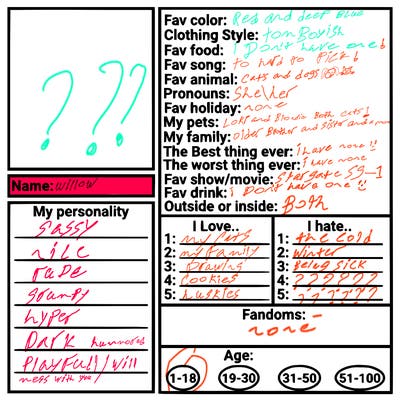 ???
Name: willow
My personality
sassy
nice
rude
grumpy
hyper
Dark humored
Playfull/will
mess with you
Fav color: Red and deep blue
Clothing Style: tomboyish
Fav food: I Don't have one!
Fav song: to hard to pick!
Fav animal: cats and dogs
Pronouns: She/her
Fav holiday: none
My pets: Loki and Blondie Both cats!
My family: older Bother and sister and a mom
The Best thing ever: i have none!!
The worst thing ever: i have none
Fav show/movie: stargate SG-1
Fav drink: I Don't have one!!
Outside or inside: Both
I Love..
1: my pets
2: my family
3: Drawing
4: cookies
5: huskies
I hate..
1: the cold
2: winter
3: Being sick
4: ??????
5: ??????
Fandoms: -
none
Age:
1-18 19-30 31-50 51-100